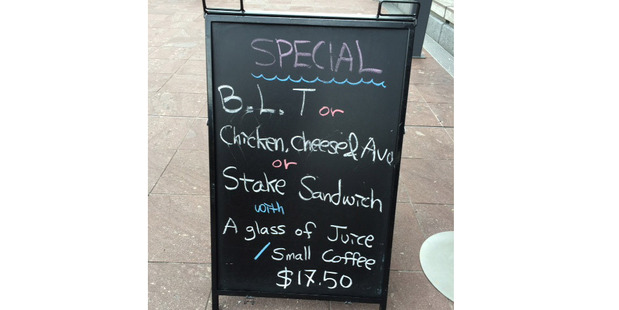 SPECIAL
B.L.T or
Chicken, Cheese & Avo
or
Stake Sandwich
with
A glass of Juice
/ Small Coffee
$17.50